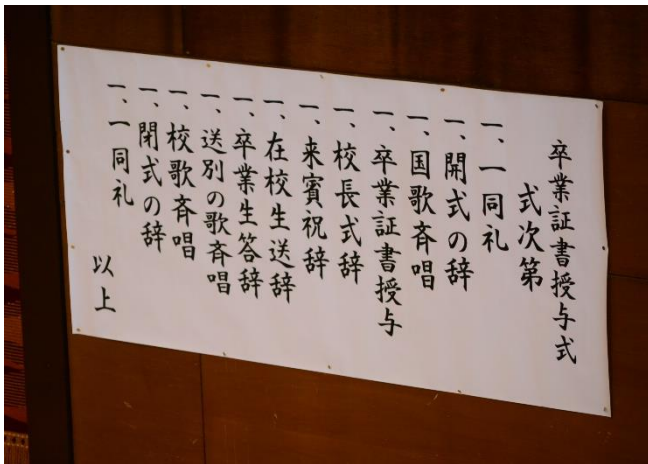 卒業証書授与式
式次第
一、一同礼
一、開式の辞
一、国歌斉唱
一、卒業証書授与
一、校長式辞
一、来賓祝辞
一、在校生送辞
一、卒業生答辞
一、送別の歌斉唱
一、校歌斉唱
一、閉式の辞
一、一同礼
以上